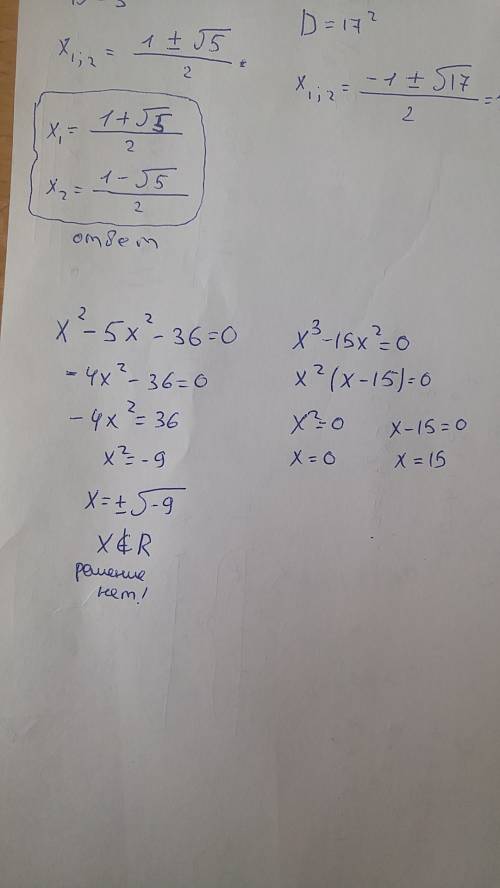 x₁;₂ = (1 ± √5)/2
x₁ = (1 + √5)/2
x₂ = (1 - √5)/2
ответ
D = 17²
x₁;₂ = (-1 ± √17)/2 =
x² - 5x² - 36 = 0
- 4x² - 36 = 0
- 4x² = 36
x² = -9
x = ± √-9
x ∉ R
решение
нет!
x³ - 15x² = 0
x² (x - 15) = 0
x² = 0 x - 15 = 0
x = 0 x = 15